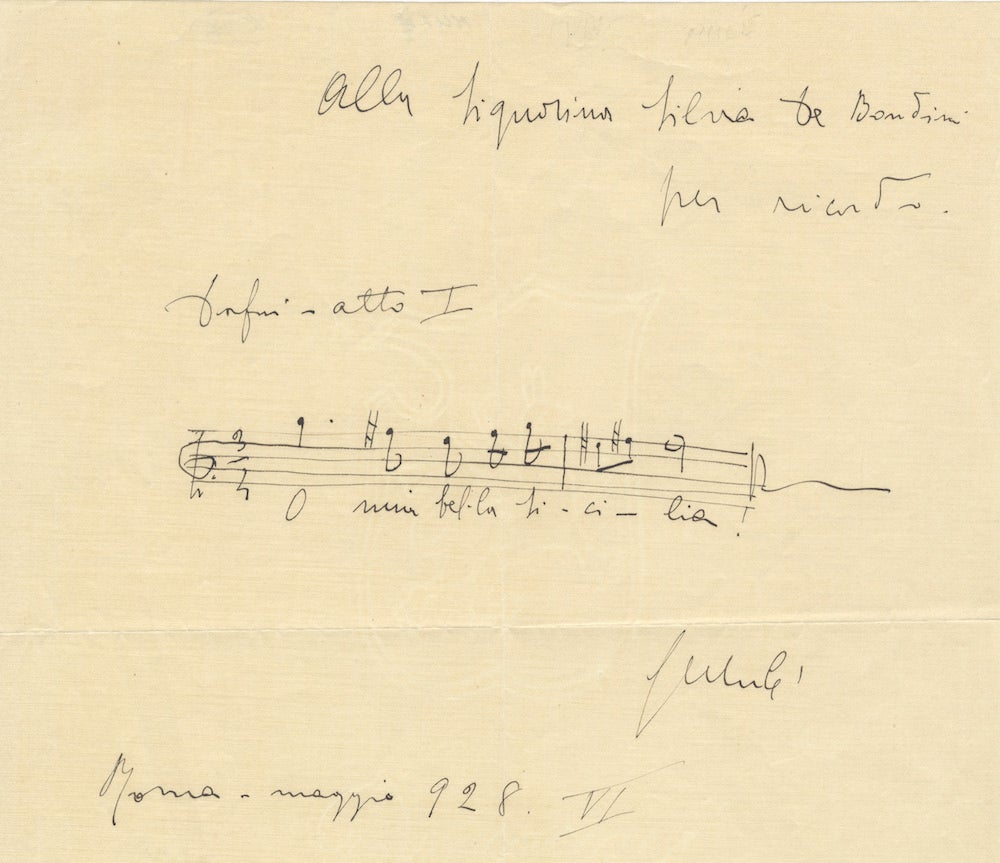 Alla Signorina Silvia De Bondini
per ricordo.
Dafni - atto I
3
4
O mia bel-la Si-ci-lia!
GMulè
Roma - maggio 928. VI